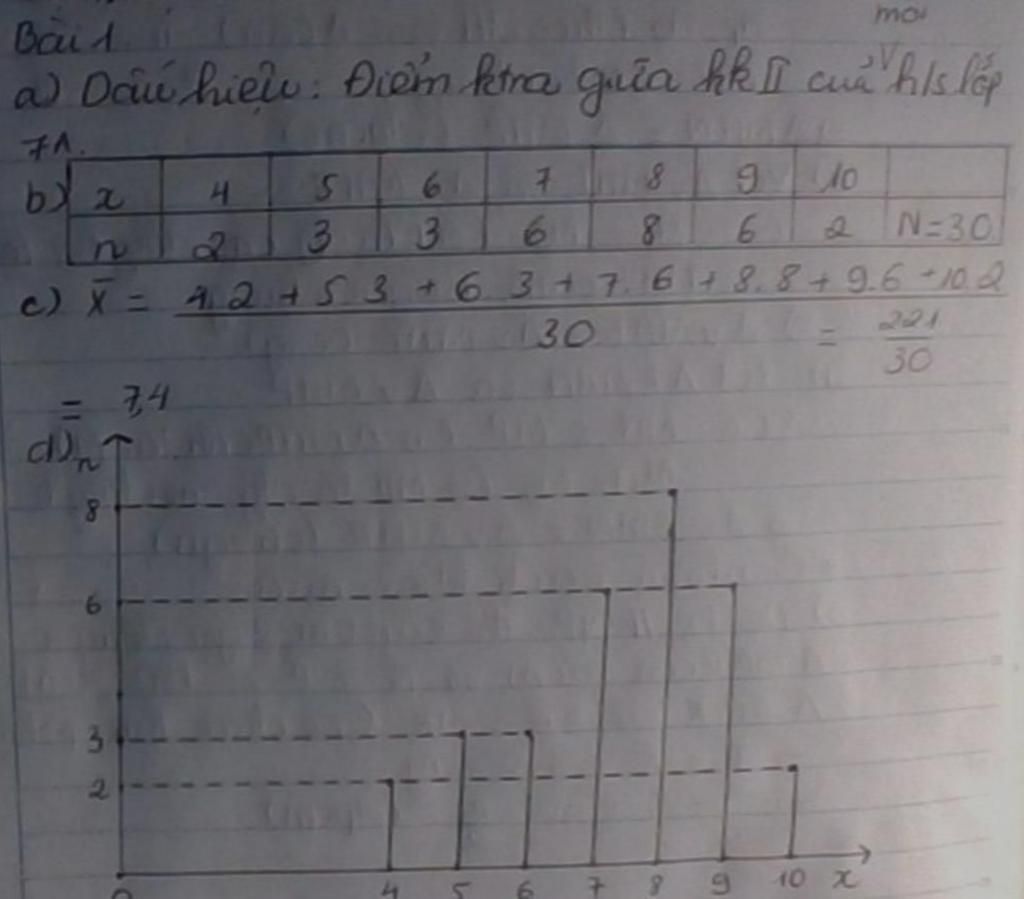 mỗi
Bài 1
a) Dấu hiệu: Điểm ktra giữa hk II của h/s lớp
7A.
b) x 4 5 6 7 8 9 10
n 2 3 3 6 8 6 2 N=30
c) X̄ = 4.2 + 5.3 + 6.3 + 7.6 + 8.8 + 9.6 + 10.2
30 = 221
30
= 7,4
d) n
8
6
3
2
0 4 5 6 7 8 9 10 x